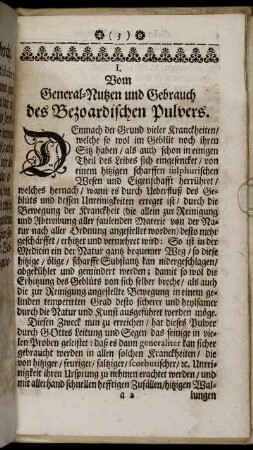 ( 3 )
I.
Vom
General-Nutzen und Gebrauch
des Bezoardischen Pulvers.
DEmnach der Grund vieler Kranckheiten/
welche so wol im Geblüt noch ihren
Sitz haben / als auch schon in einigen
Theil des Leibes sich eingesencket / von
einem hitzigen scharffen sulphurischen
Wesen und Eigenschafft herrühret /
welches hernach / wann es durch Ueberfluß des Ge-
blüts und dessen Unreinigkeiten erreget ist / durch die
Bewegung der Kranckheit (die allein zur Reinigung
und Abtreibung aller faulenden Materie von der Na-
tur nach aller Ordnung angestellet worden) desto mehr
geschärffet / erhitzet und vermehret wird: So ist in der
Medicin der Natur gantz bequemer Weg / so diese
hitzige / ölige / scharffe Substantz kan niedergeschlagen/
abgekühlet und gemindert werden; damit so wol die
Erhitzung des Geblüts von sich selber breche / als auch
die zur Reinigung angestellte Bewegung in einem ge-
linden temperirten Grad desto sicherer und heylsamer
durch die Natur und Kunst ausgeführet werden möge.
Diesen Zweck nun zu erreichen / hat dieses Pulver
durch GOttes Leitung und Segen das seinige in vie-
len Proben geleistet: daß es dann generaliter kan sicher
gebrauchet werden in allen solchen Kranckheiten / die
von hitziger / feuriger / saltziger / scorbutischer / ꝛc. Unrei-
nigkeit ihren Ursprung zu nehmen erachtet werden / und
mit allerhand schnellen hefftigen Zufällen/hitzigen Wal-
a 2 lungen